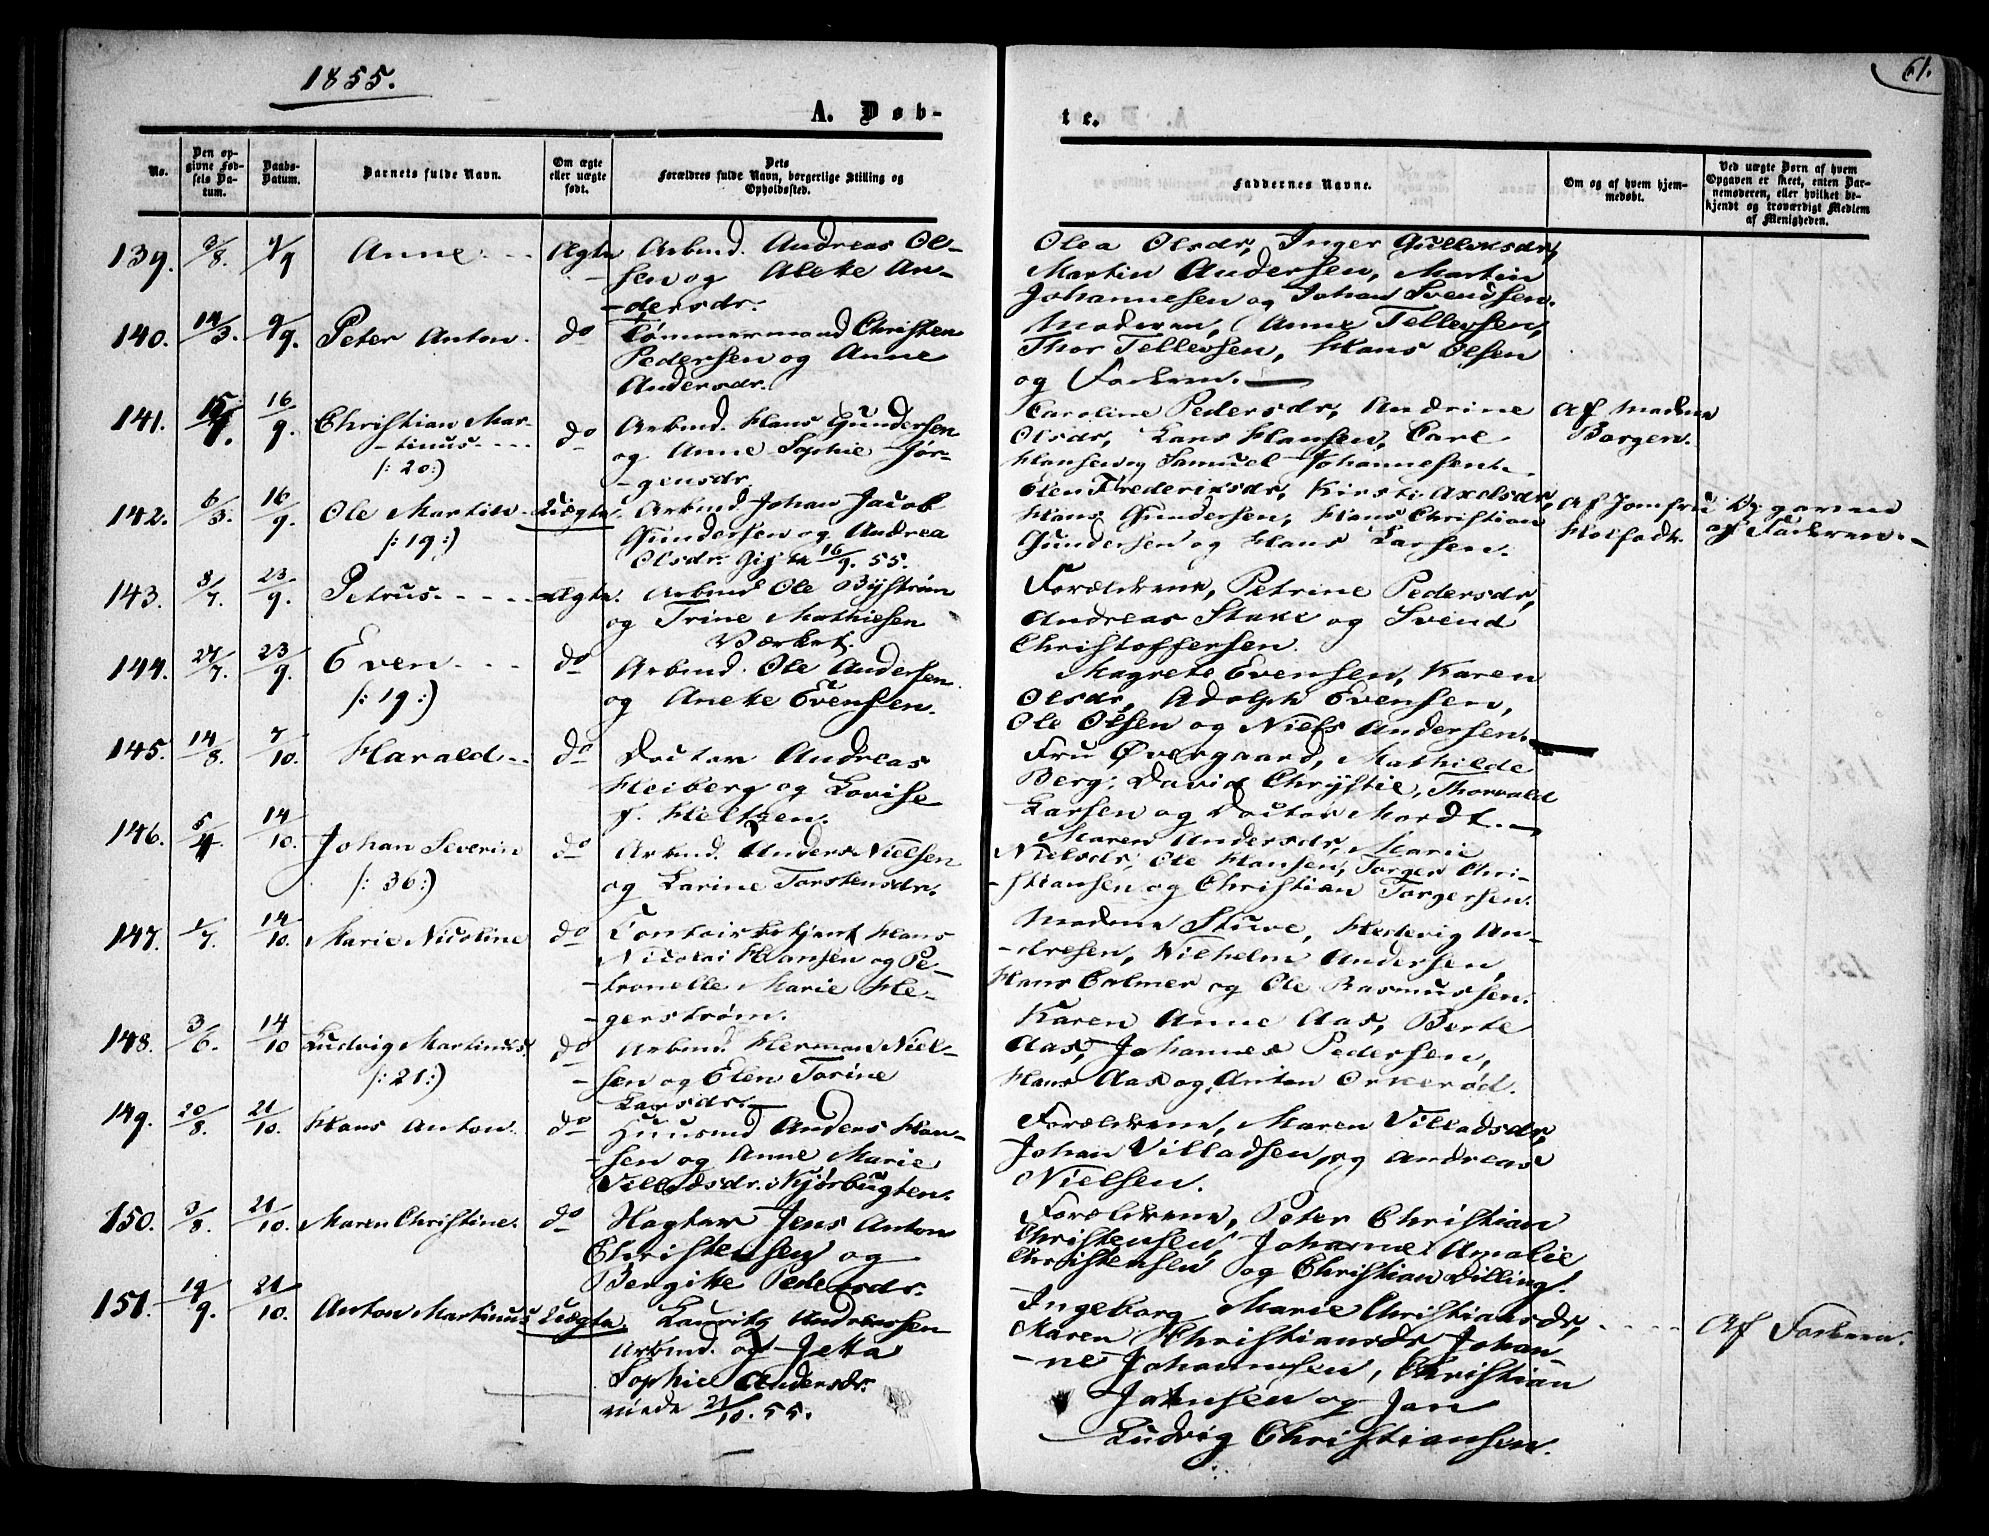 1855.
61.
A. Døb-
te.
No.
Den op-
givne Fød-
sels Da-
tum.
Daabs-
Datum.
Barnets fulde Navn.
Om ægte
eller uægte
født.
Dets
Forældres fulde Navn, borgerlige Stilling og
Opholdssted.
Faddernes Navne.
Om og af hvem hjem-
medøbt.
Ved uægte Børn af hvem
Opgaven er skeet, enten Bar-
nemoderen, eller hvilket be-
kjendt og troværdigt Medlem
af Menigheden.
139. 3/8. 9/9 Anne Ægte Arbmd. Andreas Ol-
sen og Aleke An-
dersdr.
Olea Olsdr, Inger Gulleksdr,
Martin Andersen, Martin
Johannesen og Johan Svendsen.
140. 14/3. 9/9. Peter Anton. do Tømmermand Christen
Pedersen og Anne
Andersdr.
Moderen, Anne Tellevsen,
Thor Tellevsen, Hans Olsen
og Faderen.
141. 16/9. Christian Mar-
tinus
/: 20:)
do Arbmd. Hans Gundersen
og Anne Sophie Jør-
gensdr.
Caroline Pedersdr, Andrine
Olsdr, Lars Hansen, Carl
Hansen og Samuel Johannesen.
Af Madme
Borgen.
142. 6/3. 16/9. Ole Martin
/: 19:)
Uægte. Arbmd. Johan Jacob
Gundersen og Andrea
Olsdr. Gifte 16/9. 55.
Elen Frederiksdr, Kirsti Axelsdr,
Hans Gundersen, Hans Christian
Gundersen og Hans Larsen.
Af Jomfru
Holfodt.
Opgaven
af Faderen.
143. 8/7. 23/9. Petrus Ægte. Arbmd Ole Bystrøm
og Trine Mathiesen
Værket.
Forældrene, Petrine Pedersdr,
Andreas Stake og Svend
Christoffersen.
144. 27/7. 23/9. Even
/: 19:)
do Arbmd. Ole Andersen
og Aneke Evensen.
Magrete Evensen, Karen
Olsdr, Adolph Evensen,
Ole Olsen og Niels Andersen.
145. 14/8. 7/10. Harald do Doctor Andreas
Heiberg og Lovise
f. Heltzen.
Fru Øvergaard, Mathilde
Berg, David Chrystie, Thorvald
Larsen og Doctor Mordt.
146. 5/4. 14/10. Johan Severin
/: 36:)
do Arbmd. Anders Nielsen
og Karine Torstensdr.
Maren Andersdr, Marie
Nielsdr, Ole Hansen, Torger Chri-
stiansen og Christian Torgersen.
147. 1/7. 14/10. Marie Nicoline do Contoirbetjent Hans
Nicolai Hansen og Pe-
tronelle Marie He-
gerstrøm.
Madme Stuve, Hedevig An-
dresen, Vilhelm Andersen,
Hans Colmer og Ole Rasmussen.
148. 3/6. 14/10 Ludvig Martinus.
/: 21:)
do Arbmd Herman Niel-
sen og Elen Torine
Larsdr.
Karen Anne Aas, Berte
Aas, Johannes Pedersen,
Hans Aas og Anton Orkerød.
149. 20/8. 21/10. Hans Anton. do Huusmd Anders Han-
sen og Anne Marie
Villadsdr. Kjørbugten.
Forældrene, Maren Villadsdr,
Johan Villadsen og Andreas
Nielsen.
150. 3/8. 21/10. Maren Christine. do Vægter Jens Anton
Christensen og
Bergitte Pedersdr.
Forældrene, Peter Christian
Christensen, Johanne Amalie
Christensen og Christian Dilling.
151. 19/9. 21/10. Anton Martinus Uægte. Lauritz Andreassen
Arbmd. og Jetta
Sophie Andersdr.
viede 21/10. 55.
Ingeborg Marie Christiansdr,
Maren Christiansdr, Johan-
ne Johannesen, Christian
Johnsen og Jan
Ludvig Christiansen.
Af Faderen.